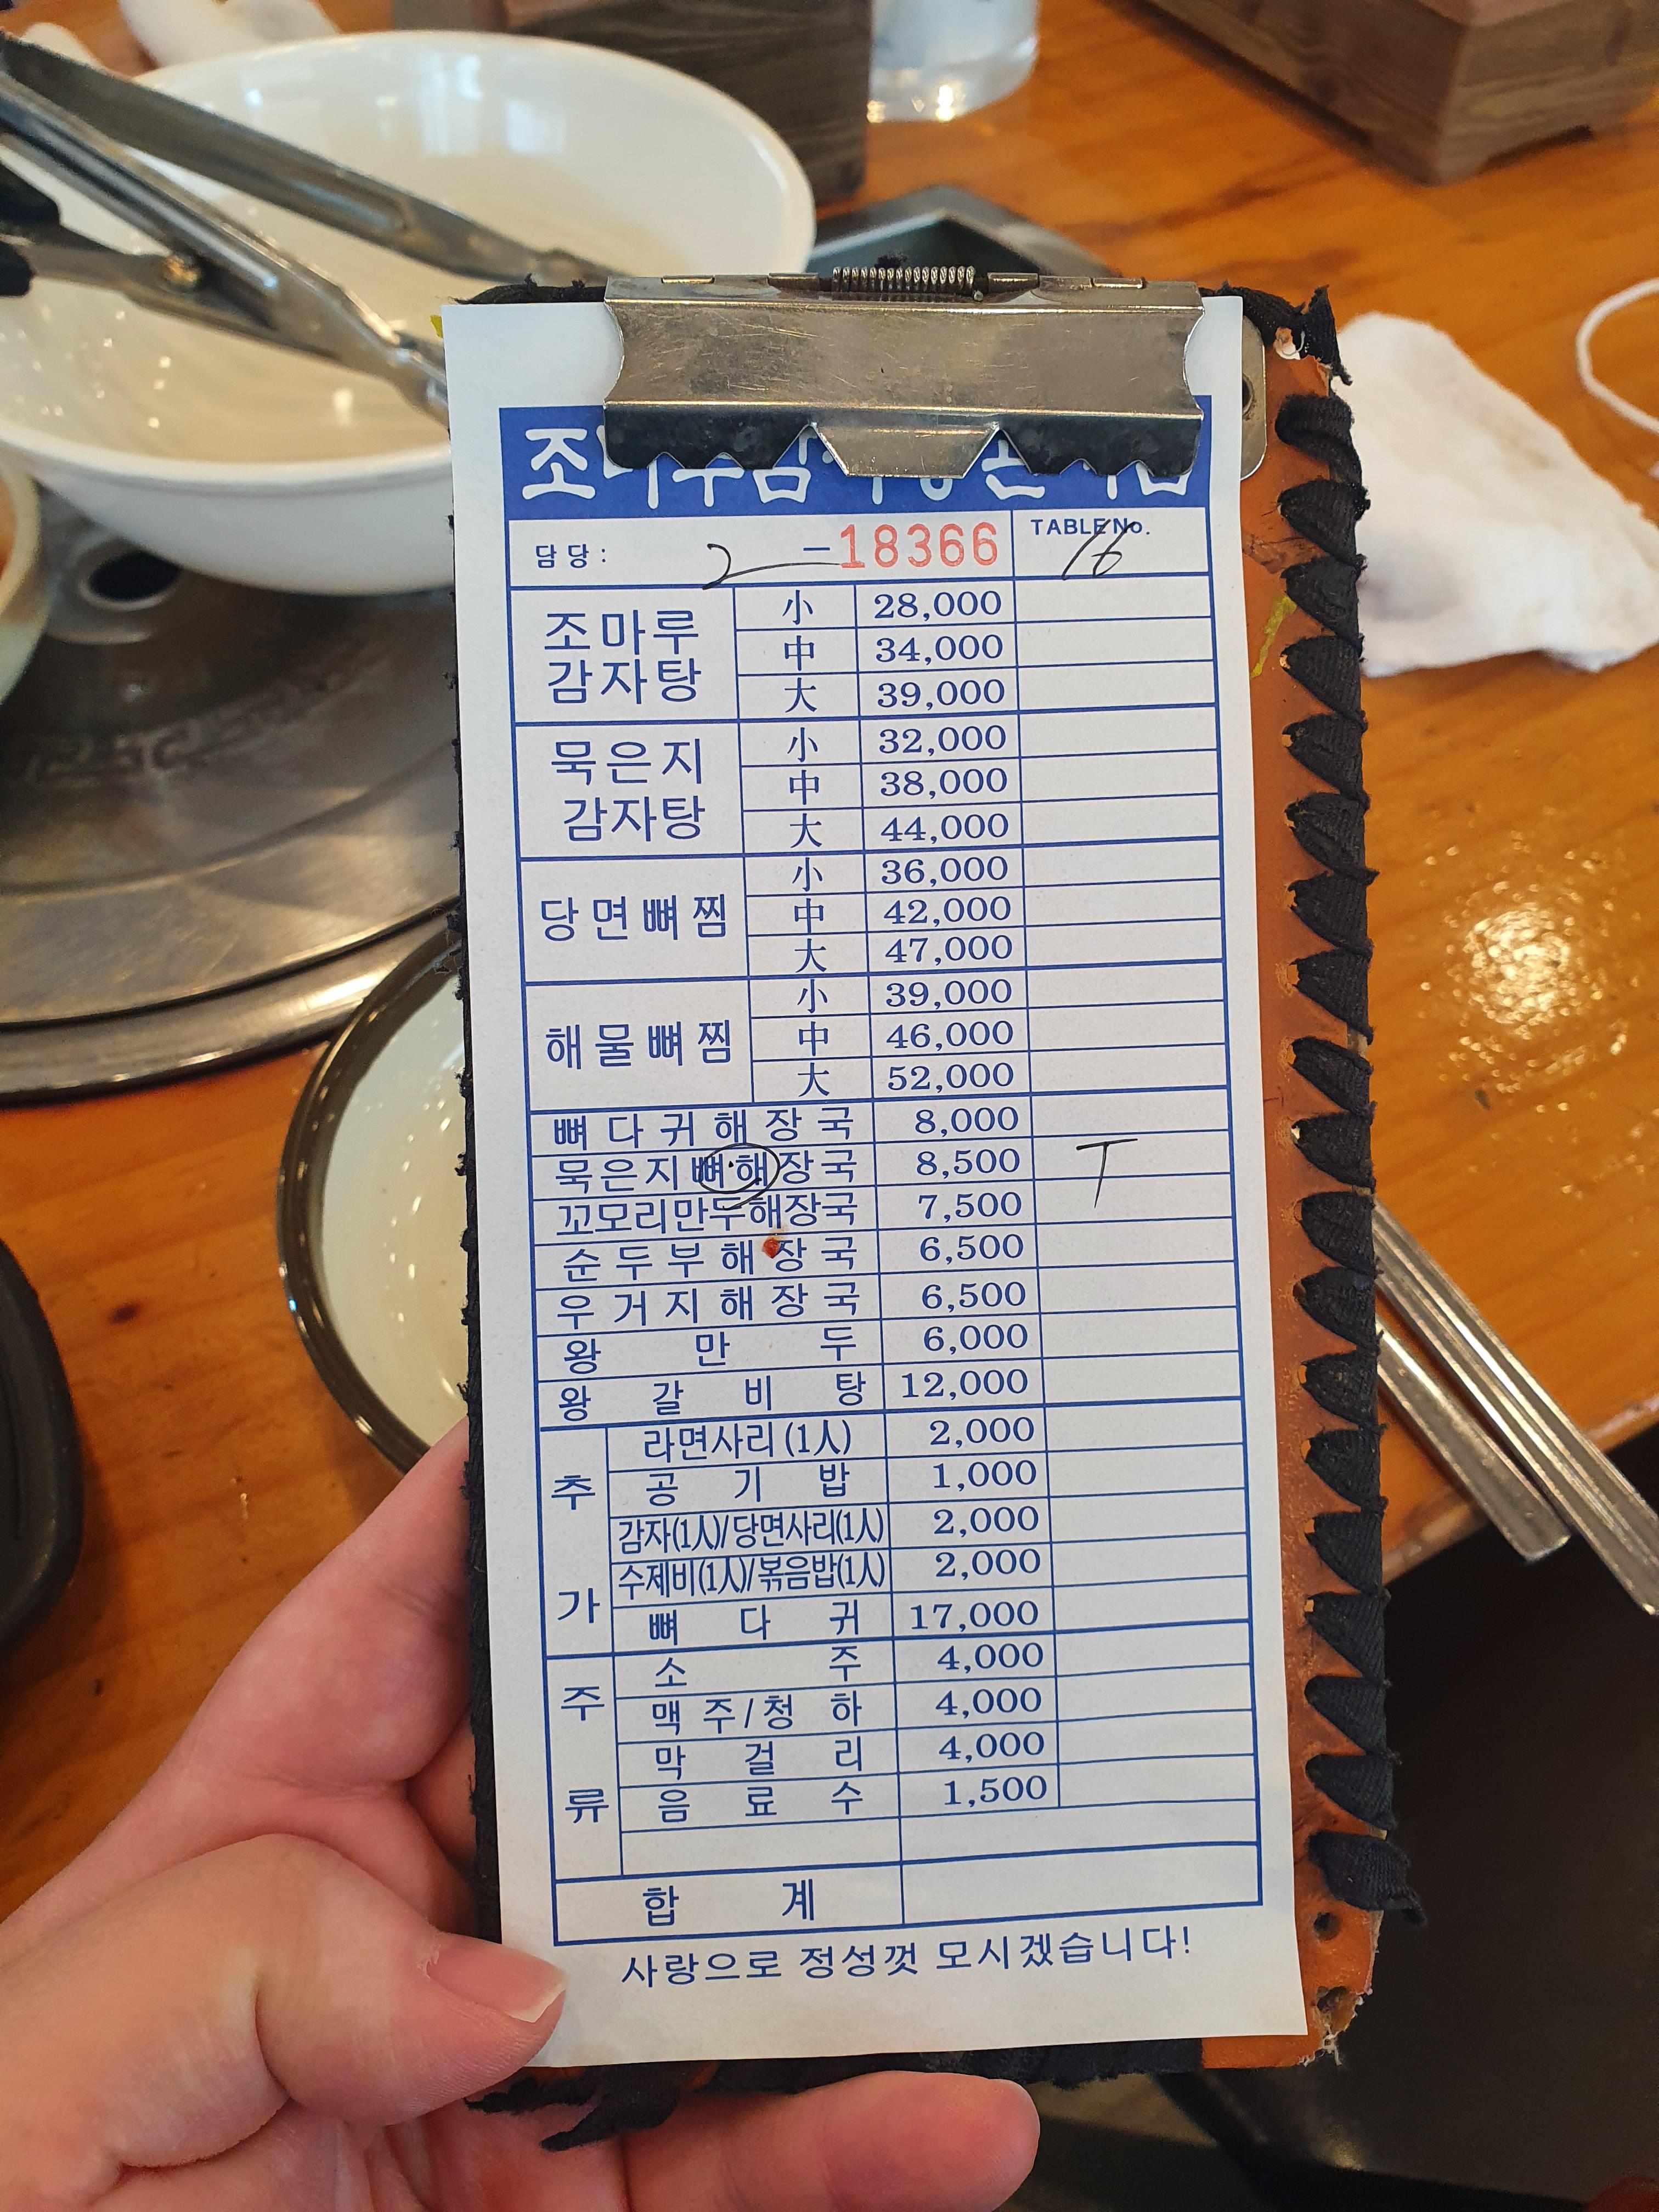 담당: 2 -18366 TABLE No. 16
조마루 감자탕 小 28,000
中 34,000
大 39,000
묵은지 감자탕 小 32,000
中 38,000
大 44,000
당면뼈찜 小 36,000
中 42,000
大 47,000
해물뼈찜 小 39,000
中 46,000
大 52,000
뼈다귀해장국 8,000
묵은지뼈해장국 8,500 T
꼬모리만두해장국 7,500
순두부해장국 6,500
우거지해장국 6,500
왕만두 6,000
왕갈비탕 12,000
추가 라면사리(1人) 2,000
공기밥 1,000
감자(1人)/당면사리(1人) 2,000
수제비(1人)/볶음밥(1人) 2,000
뼈다귀 17,000
주류 소주 4,000
맥주/청하 4,000
막걸리 4,000
음료수 1,500
합계
사랑으로 정성껏 모시겠습니다!